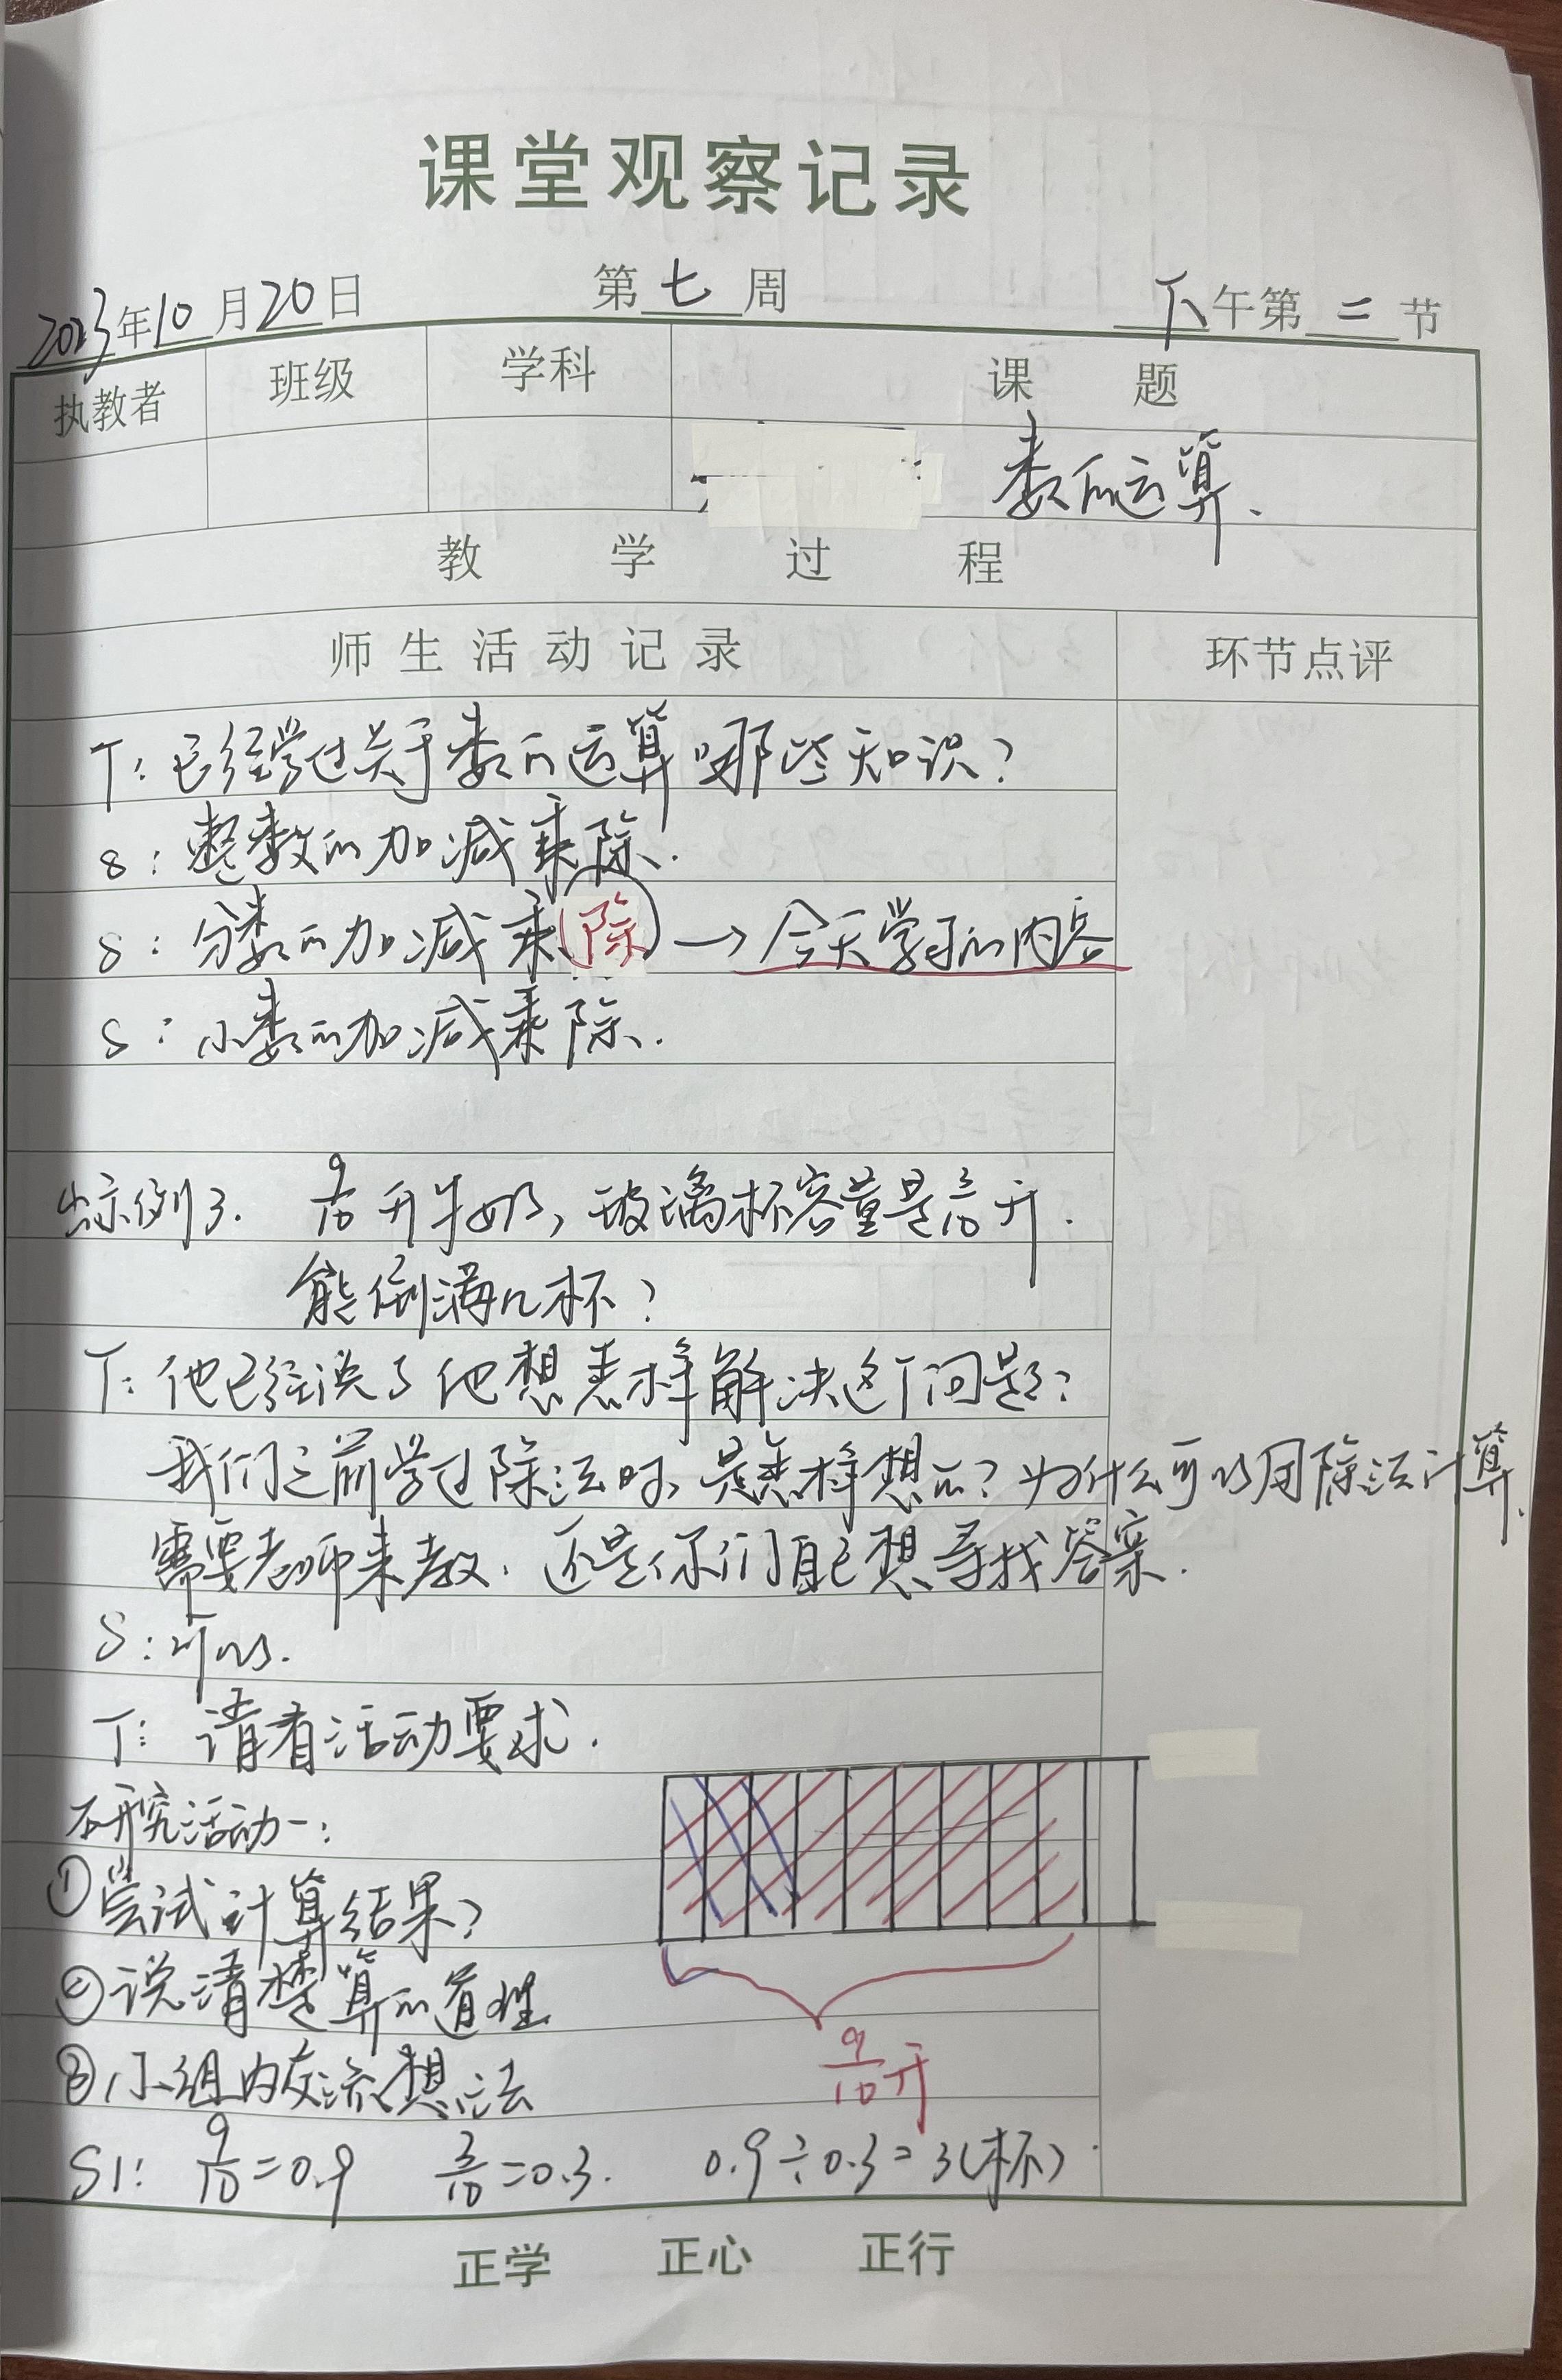 课堂观察记录
2023年10月20日 第七周 下午第二节
执教者 班级 学科 课题
数的运算.
教学过程
师生活动记录 环节点评
T：已经学过关于数的运算哪些知识？
S：整数的加减乘除.
S：分数的加减乘(除)→今天学习的内容
S：小数的加减乘除.
出示例3. 9/10升牛奶，玻璃杯容量是3/10升.
能倒满几杯？
T：他已经说了他想怎样解决这个问题？
我们之前学过除法时，是怎样想的？为什么可以用除法计算.
需要老师来教，还是你们自己想寻找答案.
S：可以.
T：请看活动要求.
研究活动一：
①尝试计算结果？
②说清楚算的道理
③小组内交流想法
9/10升
S1：9/10=0.9 3/10=0.3. 0.9÷0.3=3(杯)
正学 正心 正行